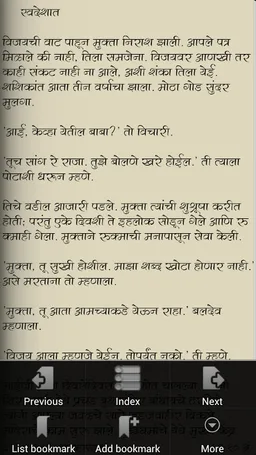 स्वदेशात
विजयची वाट पाहून मुक्ता निराश झाली. आपले पत्र
मिळाले की नाही, तिला समजेना. विजयवर आणखी तर
काही संकट नाही ना आले, अशी शंका तिला येई.
शशिकांत आता तीन वर्षाचा झाला. मोठा गोड सुंदर
मुलगा.
'आई, केव्हा येतील बाबा?' तो विचारी.
'तूच सांग रे राजा. तुझे बोलणे खरे होईल.' ती त्याला
पोटाशी धरून म्हणे.
तिचे वडील आजारी पडले. मुक्ता त्यांची शुश्रूषा करीत
होती; परंतु एके दिवशी ते इहलोक सोडून गेले आणि रु
क्माही गेला. मुक्ताने रुक्माची मनापासून सेवा केली.
'मुक्ता, तू सुखी होशील. माझा शब्द खोटा होणार नाही.'
असे मरताना तो म्हणाला.
'मुक्ता, तू आता आमच्याकडे येऊन राहा.' बलदेव
म्हणाला.
'विजय आला म्हणजे येईन. तोपर्यंत नको.' ती म्हणे.
Previous Index Next
List bookmark Add bookmark More